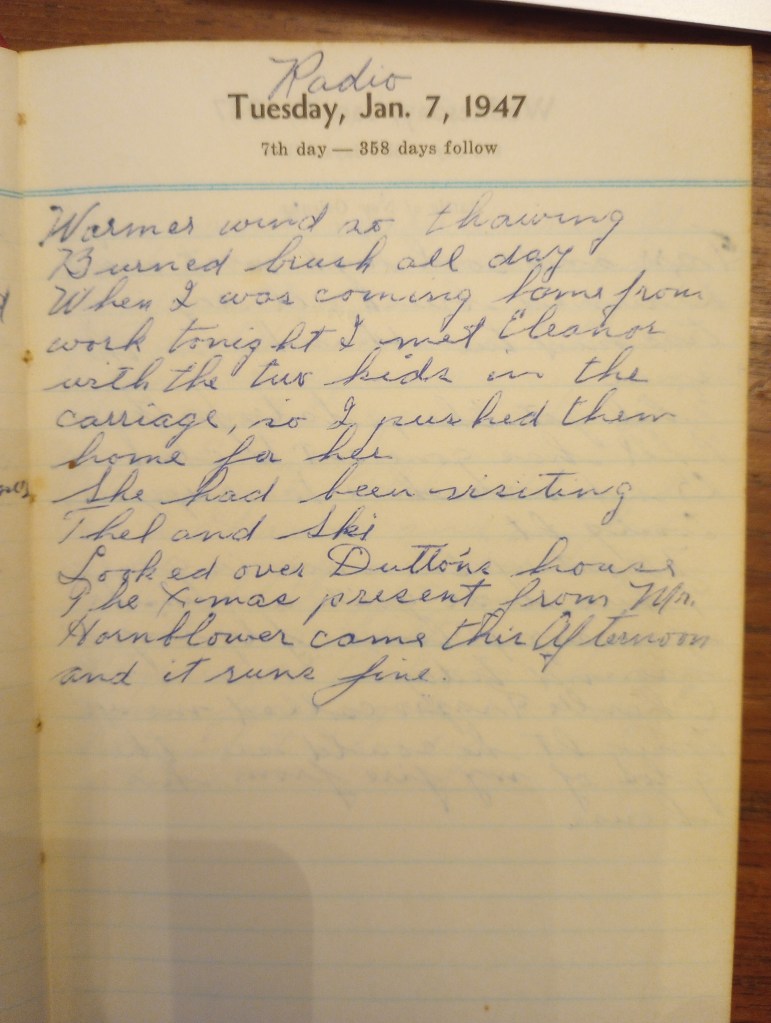 Radio
Tuesday, Jan. 7, 1947
7th day — 358 days follow
Warmer wind so thawing
Burned brush all day
When I was coming home from
work tonight I met Eleanor
with the two kids in the
carriage, so I pushed them
home for her
She had been visiting
Thel and Ski
Looked over Dutton's house
The X-mas present from Mr.
Hornblower came this Afternoon
and it runs fine.